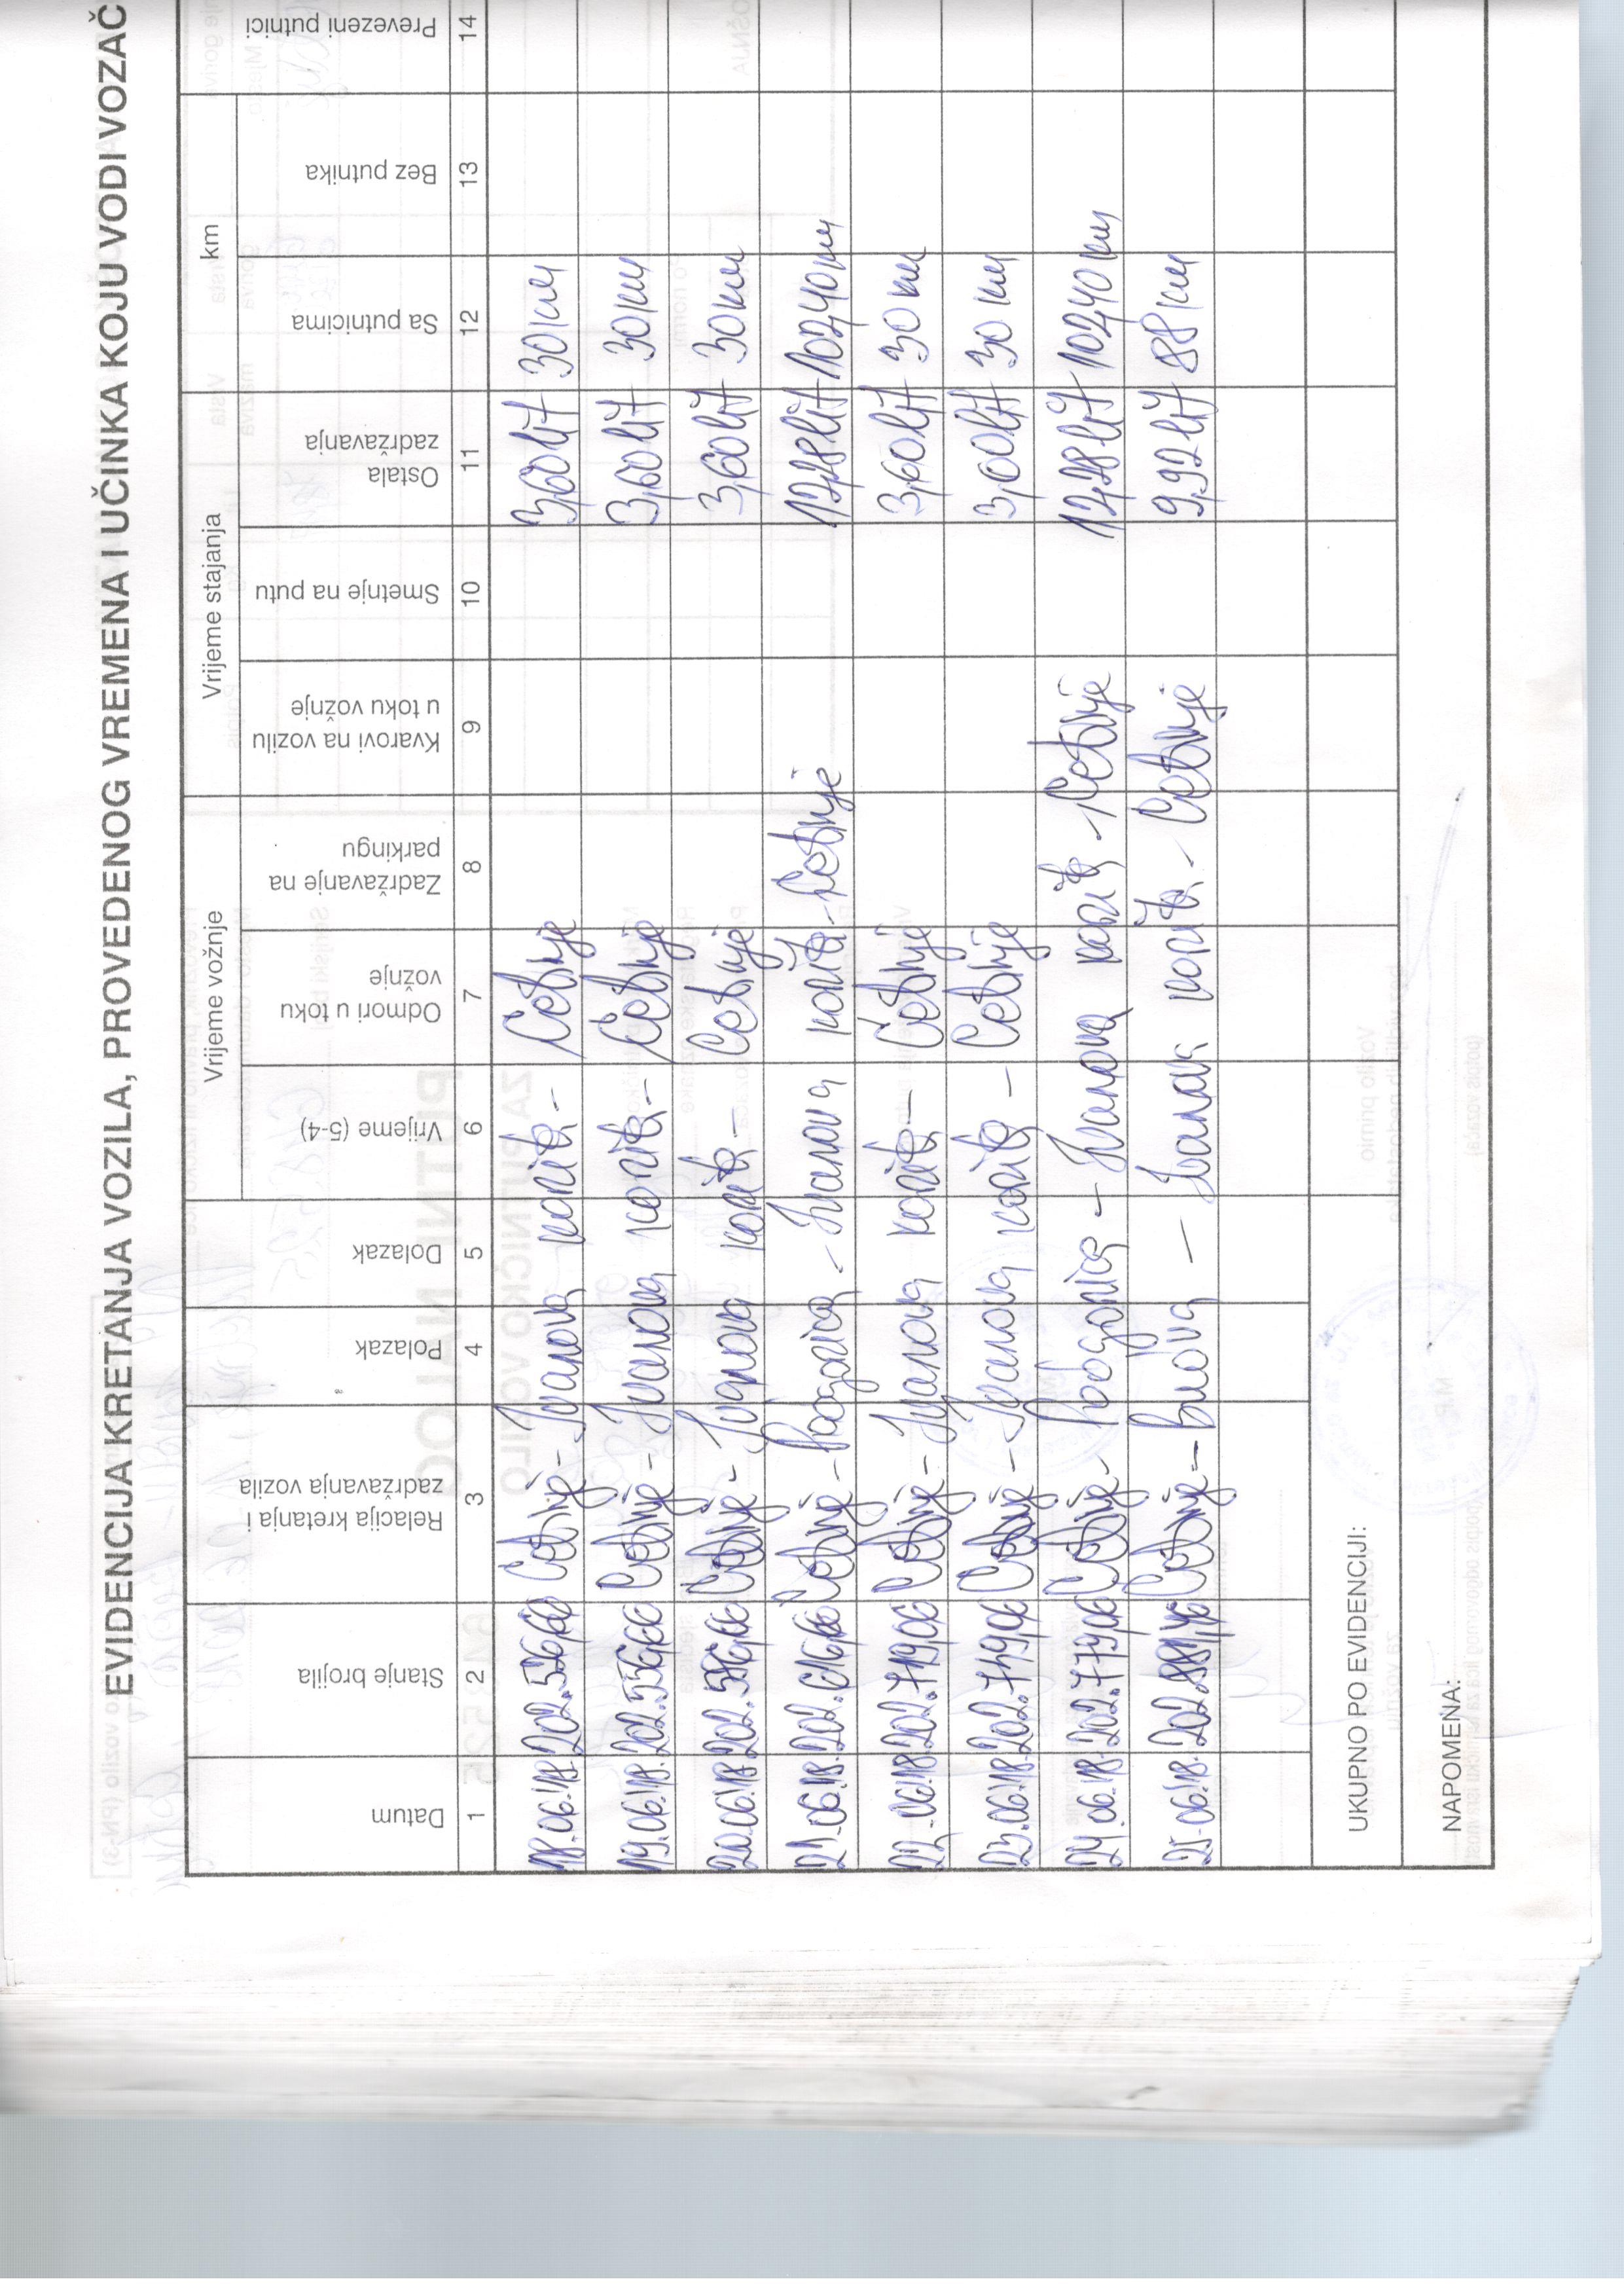 EVIDENCIJA KRETANJA VOZILA, PROVEDENOG VREMENA I UČINKA KOJU VODI VOZAČ
Vrijeme vožnje Vrijeme stajanja km
Datum Stanje brojila Relacija kretanja i zadržavanja vozila Polazak Dolazak Vrijeme (5-4) Odmori u toku vožnje Zadržavanje na parkingu Kvarovi na vozilu u toku vožnje Smetnje na putu Ostala zadržavanja Sa putnicima Bez putnika Prevezeni putnici
1 2 3 4 5 6 7 8 9 10 11 12 13 14
18.06.18. Cetinje - Ivanova korita - Cetinje 3,60 lit 30 km
19.06.18. Cetinje - Ivanova korita - Cetinje 3,60 lit 30 km
20.06.18. Cetinje - Ivanova korita - Cetinje 3,60 lit 30 km
21.06.18. 202.616,66 Cetinje - Podgorica - Ivanova korita - Cetinje 12,28 lit 102,40 km
22.06.18. 202.719,06 Cetinje - Ivanova korita - Cetinje 3,60 lit 30 km
23.06.18. 202.749,06 Cetinje - Ivanova korita - Cetinje 3,60 lit 30 km
24.06.18. 202.779,06 Cetinje - Podgorica - Ivanova korita - Cetinje 12,28 lit 102,40 km
25.06.18. 202.881,46 Cetinje - - Ivanova korita - Cetinje 9,92 lit 88 km
UKUPNO PO EVIDENCIJI:
NAPOMENA: